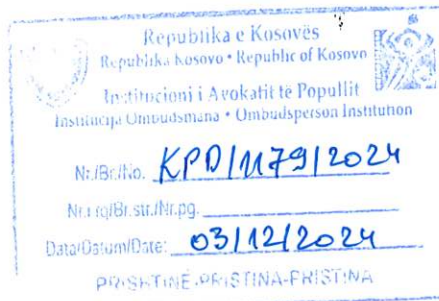 Republika e Kosovës
Republika Kosovo • Republic of Kosovo
Institucioni i Avokatit të Popullit
Institucija Ombudsmana • Ombudsperson Institution
Nr./Br./No. KPD/1179/2024
Nr.i fq/Br.str./Nr.pg.
Data/Datum/Date: 03/12/2024
PRISHTINË-PRIŠTINA-PRISTINA